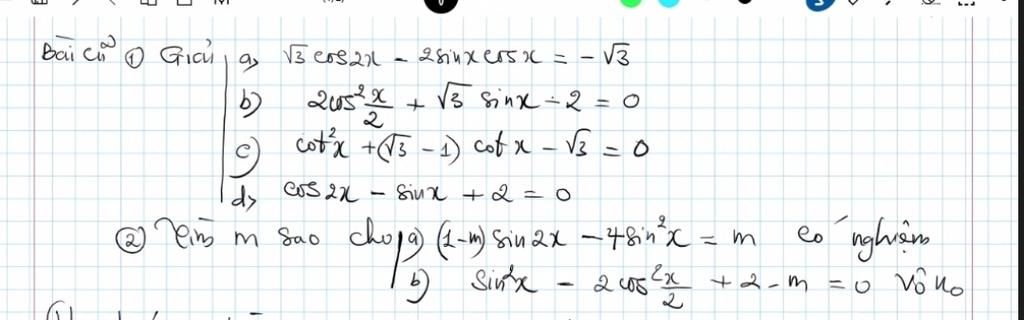 Bài cũ ① Giải a> √3 cos2x - 2sinx cosx = -√3
b) 2cos² x/2 + √3 sinx - 2 = 0
c) cot²x + (√3 - 1) cot x - √3 = 0
d> cos2x - sinx + 2 = 0
② Tìm m sao cho a) (1-m) sin2x - 4sin²x = m có nghiệm
b) sin²x - 2cos² x/2 + 2 - m = 0 vô no